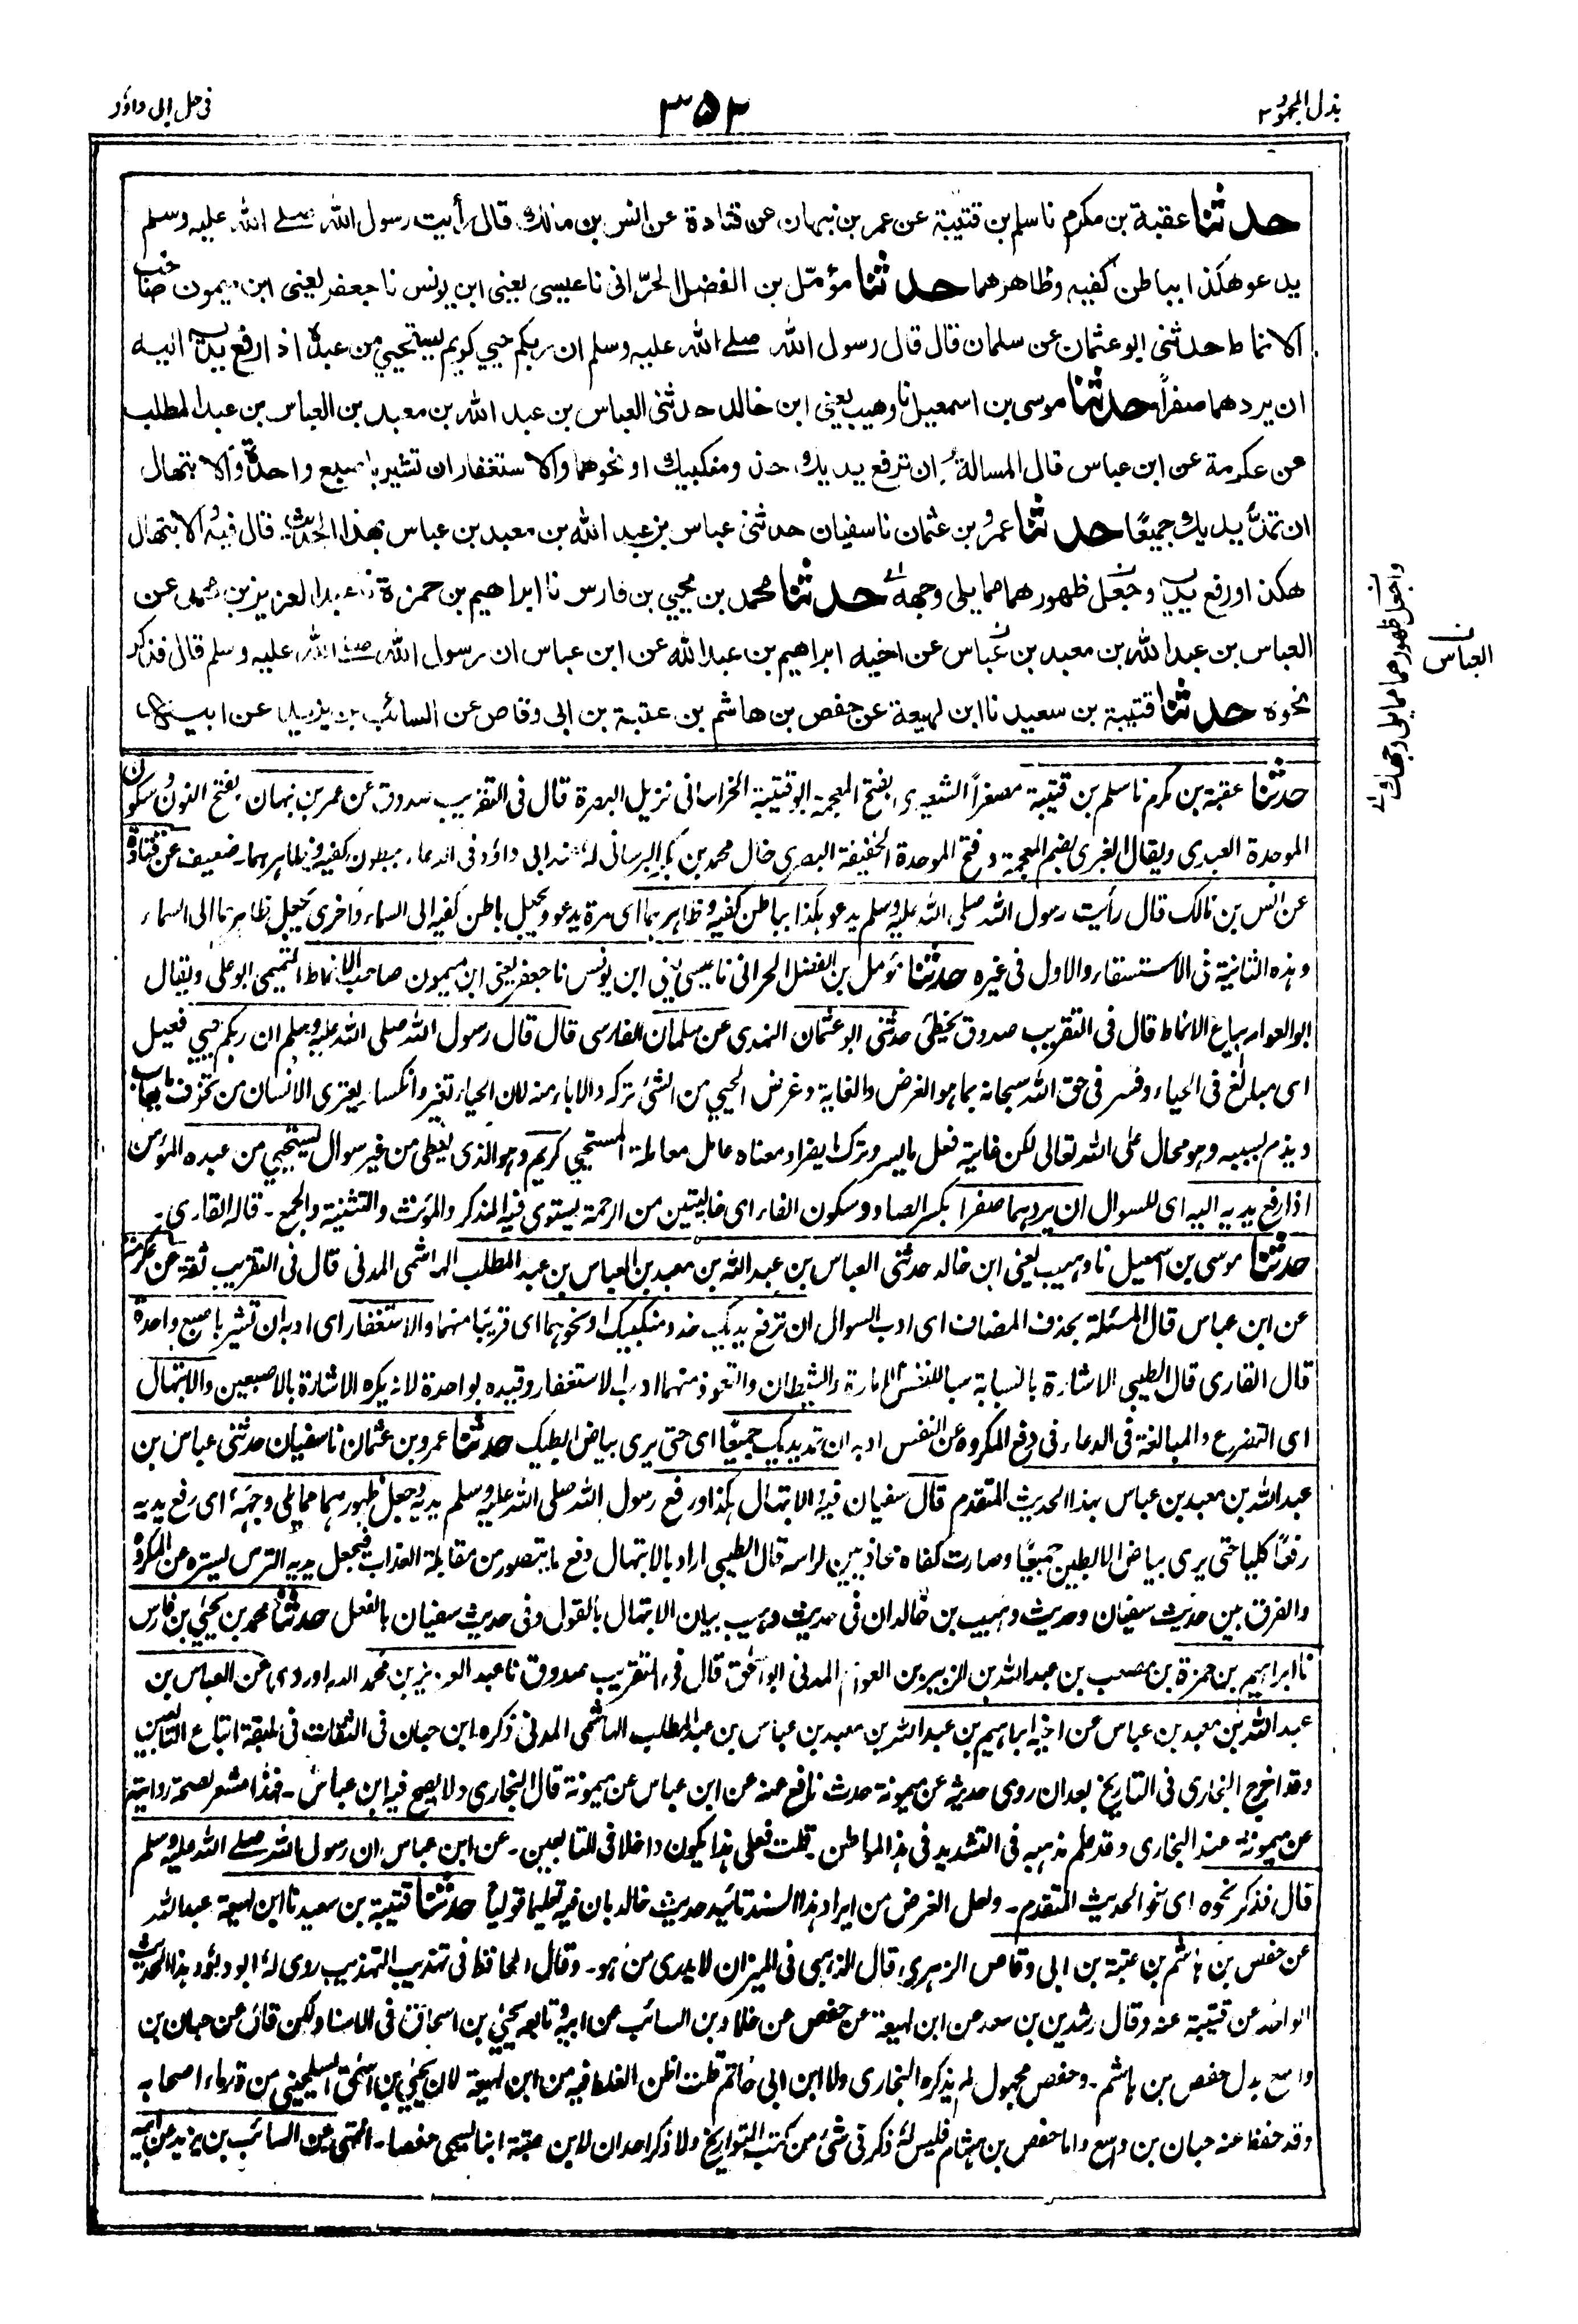 بذل المجهود ٢
٣٥٢
فی حل ابی داؤد
حدثنا عقبة بن مكرم نا سلم بن قتيبة عن عمر بن نبهان عن قتادة عن انس بن مالك قال رأيت رسول الله صلے الله عليه وسلم
يدعو هكذا بباطن كفيه وظاهرهما حدثنا مؤمّل بن الفضل الحرّانی نا عيسی يعنی ابن يونس نا جعفر يعنی ابن ميمون صاحب
الانماط حدثنی ابو عثمان عن سلمان قال قال رسول الله صلے الله عليه وسلم ان ربكم حيی كريم يستحيی من عبده اذا رفع يديه اليه
ان يردهما صفراً حدثنا موسی بن اسمعيل نا وهيب يعنی ابن خالد حدثنی العباس بن عبد الله بن معبد بن العباس بن عبد المطلب
عن عكرمة عن ابن عباس قال المسالة ان ترفع يديك حذو منكبيك او نحوهما والاستغفار ان تشير باصبع واحدة والابتهال
ان تمدّ يديك جميعًا حدثنا عمرو بن عثمان نا سفيان حدثنی عباس بن عبد الله بن معبد بن عباس بهذا الحديث قال فيه الابتهال
هكذا ورفع يديه وجعل ظهورهما مما يلی وجهه حدثنا محمد بن يحيی بن فارس نا ابراهيم بن حمزة نا عبد العزيز بن محمد عن
العباس بن عبد الله بن معبد بن عباس عن اخيه ابراهيم بن عبد الله عن ابن عباس ان رسول الله صلے الله عليه وسلم قال فذكر
نحوه حدثنا قتيبة بن سعيد نا ابن لهيعة عن حفص بن هاشم بن عتبة بن ابی وقاص عن السائب بن يزيد عن ابيه
واجعل ظهورهما مما يلی وجهك
العباس
حدثنا عقبة بن مكرم نا سلم بن قتيبة مصغراً الشعيری بفتح المعجمة ابو قتيبة الخراسانی نزيل البصرة قال فی التقريب صدوق عن عمر بن نبهان بفتح النون وسكون
الموحدة العبدی ويقال الغبری بضم المعجمة وفتح الموحدة الخفيفة البصری خال محمد بن بكر البرسانی له عند ابی داؤد فی الدعاء ببطون كفيه وظاهرهما ضعيف عن قتادة
عن انس بن مالك قال رأيت رسول الله صلی الله عليه وسلم يدعو هكذا بباطن كفيه وظاهرهما ای مرة يدعو ويجعل باطن كفيه الی السماء واخری يجعل ظاهرهما الی السماء
وهذه الثانية فی الاستسقاء والاول فی غيره حدثنا مؤمل بن الفضل الحرانی نا عيسی يعنی ابن يونس نا جعفر يعنی ابن ميمون صاحب الانماط التميمی ابو علی ويقال
ابو العوام بياع الانماط قال فی التقريب صدوق يخطئ حدثنی ابو عثمان النهدی عن سلمان الفارسی قال قال رسول الله صلی الله عليه وسلم ان ربكم حيی فعيل
ای مبالغ فی الحياء وفسر فی حق الله سبحانه بما هو الغرض والغاية وغرض الحيی من الشئ تركه والاباء منه لان الحياء تغير وانكسار يعتری الانسان من تخوف ما يعاب
ويذم بسببه وهو محال علی الله تعالی لكن غايته فعل ما يسر وترك ما يضر او معناه عامل معاملة المستحيی كريم وهو الذی يعطی من غير سوال يستحيی من عبده المؤمن
اذا رفع يديه اليه ای للسوال ان يردهما صفراً بكسر الصاد وسكون الفاء ای خاليتين من الرحمة يستوی فيه المذكر والمؤنث والتثنية والجمع ۔ قاله القاری ۔
حدثنا موسی بن اسمعيل نا وهيب يعنی ابن خالد حدثنی العباس بن عبد الله بن معبد بن العباس بن عبد المطلب الهاشمی المدنی قال فی التقريب ثقة عن عكرمة
عن ابن عباس قال المسئلة بحذف المضاف ای ادب السوال ان ترفع يديك حذو منكبيك او نحوهما ای قريبًا منهما والاستغفار ای ادبه ان تشير باصبع واحدة
قال القاری قال الطيبی الاشارة بالسبابة سبا للنفس الامارة والشيطان والتعوذ منهما ادب الاستغفار وقيده بواحدة لانه يكره الاشارة بالاصبعين والابتهال
ای التضرع والمبالغة فی الدعاء فی دفع المكروه عن النفس ادبه ان تمد يديك جميعًا ای حتی يری بياض ابطيك حدثنا عمرو بن عثمان نا سفيان حدثنی عباس بن
عبد الله بن معبد بن عباس بهذا الحديث المتقدم قال سفيان فيه الابتهال هكذا ورفع رسول الله صلی الله عليه وسلم يديه وجعل ظهورهما مما يلی وجهه ای رفع يديه
رفعًا كليا حتی يری بياض الابطين جميعًا وصارت كفاه محاذيين لراسه قال الطيبی اراد بالابتهال دفع ما يتصور من مقابلة العذاب فيجعل يديه الترس ليستره عن المكروه
والفرق بين حديث سفيان وحديث وهيب بن خالد ان فی حديث وهيب بيان الابتهال بالقول وفی حديث سفيان بالفعل حدثنا محمد بن يحيی بن فارس
نا ابراهيم بن حمزة بن مصعب بن عبد الله بن الزبير بن العوام المدنی ابو اسحق قال فی التقريب صدوق نا عبد العزيز بن محمد الدراوردی عن العباس بن
عبد الله بن معبد بن عباس عن اخيه ابراهيم بن عبد الله بن معبد بن عباس بن عبد المطلب الهاشمی المدنی ذكره ابن حبان فی الثقات فی طبقة اتباع التابعين
وقد اخرج البخاری فی التاريخ بعد ان روی حديثه عن ميمونة حدث نافع عنه عن ابن عباس عن ميمونة قال البخاری ولا يصح فيه ابن عباس ۔ فهذا مشعر لصحة روايته
عن ميمونة عند البخاری وقد علم مذهبه فی التشديد فی هذه المواطن قلت فعلی هذا يكون داخلا فی التابعين ۔ عن ابن عباس ان رسول الله صلے الله عليه وسلم
قال فذكر نحوه ای نحو الحديث المتقدم ۔ ولعل الغرض من ايراد هذا السند تائيد حديث خالد بان فيه تعليما قوليا حدثنا قتيبة بن سعيد نا ابن لهيعة عبد الله
عن حفص بن هاشم بن عتبة بن ابی وقاص الزهری قال الذهبی فی الميزان لا يدری من هو ۔ وقال الحافظ فی تهذيب التهذيب روی له ابو داؤد هذا الحديث
الواحد عن قتيبة عنه وقال رشدين بن سعد عن ابن لهيعة عن حفص عن خلاد بن السائب عن ابيه وتابعه يحيی بن اسحاق فی الاسناد لكن قال عن حبان بن
واسع بدل حفص بن هاشم ۔ وحفص مجهول لم يذكره البخاری ولا ابن ابی حاتم قلت اظن الغلط فيه من ابن لهيعة لان يحيی بن اسحق السيلحينی من قدماء اصحابه
وقد حفظ عنه حبان بن واسع واما حفص بن هشام فليس له ذكر فی شئ من كتب التواريخ ولا ذكر احد ان لابن عتبة ابنا يسمی حفصا ۔ انتهی عن السائب بن يزيد عن ابيه